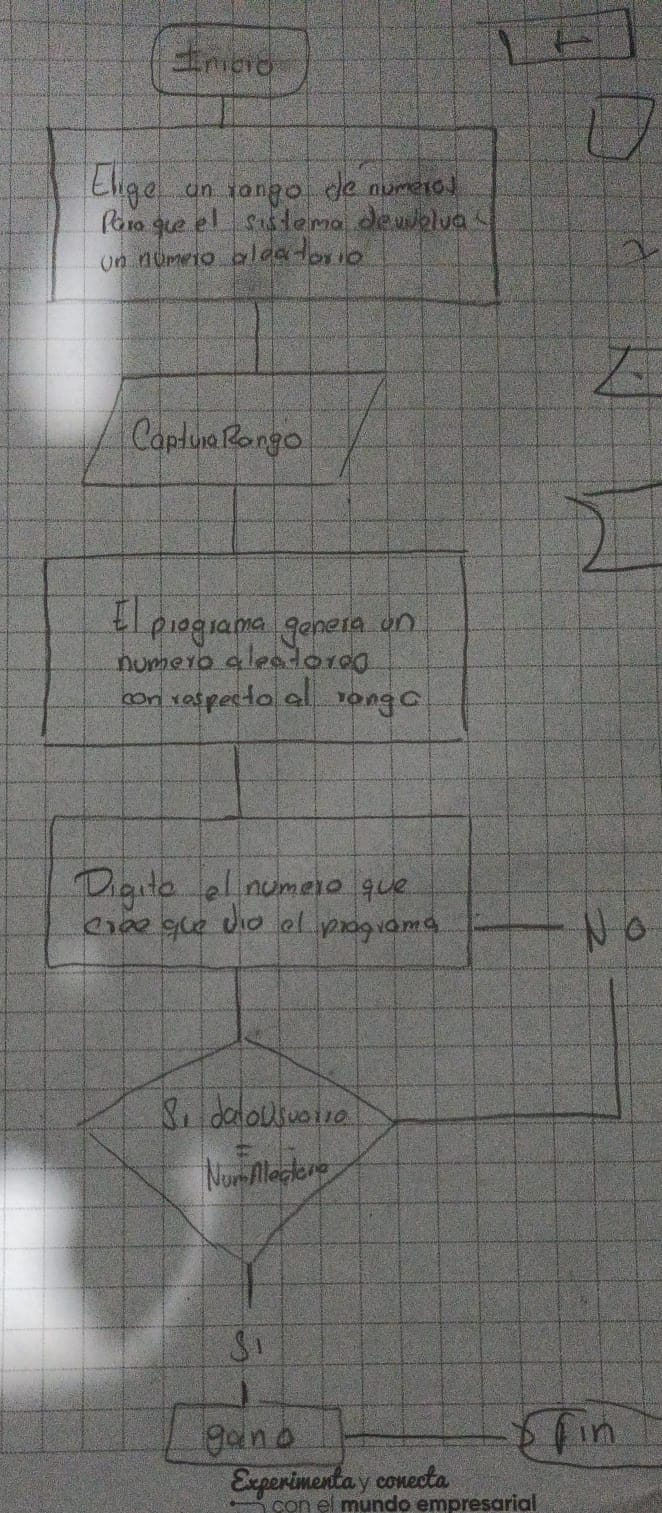 Inicio
Elige un rango de numeros
Para que el sistema devuelva
un numero aleatorio
Captura Rango
El programa genera un
numero aleatoreo
con respecto al rango
Digite el numero que
cree que dio el programa
NO
Si datoUsuario
=
NumAleatorio
Si
gano
Fin
Experimenta y conecta
con el mundo empresarial